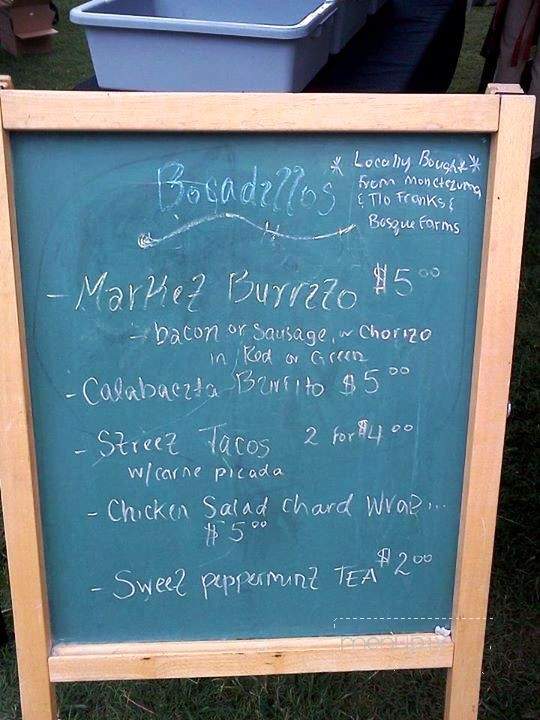 Bocadillos
* Locally Bought *
from Monctezuma
& Tio Franks &
Bosque Farms
- Market Burrito $5.00
- bacon or Sausage, or Chorizo
in Red or Green
- Calabacita Burrito $5.00
- Street Tacos 2 for $4.00
w/carne picada
- Chicken Salad chard Wrap...
$5.00
- Sweet peppermint TEA $2.00